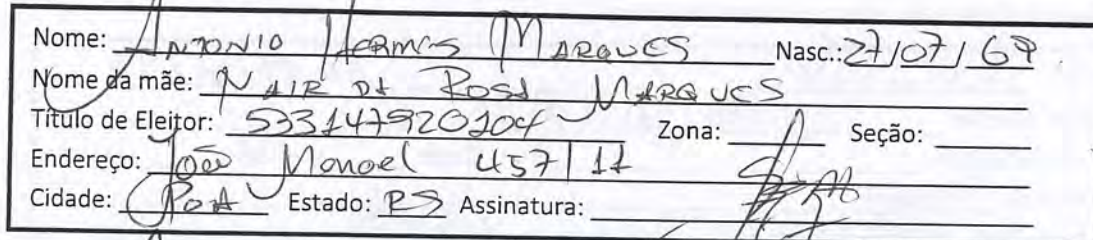 Nome: Antonio Hermes Marques Nasc.: 27/07/69
Nome da mãe: Nair da Rosa Marques
Título de Eleitor: 533147920104 Zona: Seção:
Endereço: João Manoel 457/11
Cidade: POA Estado: RS Assinatura: